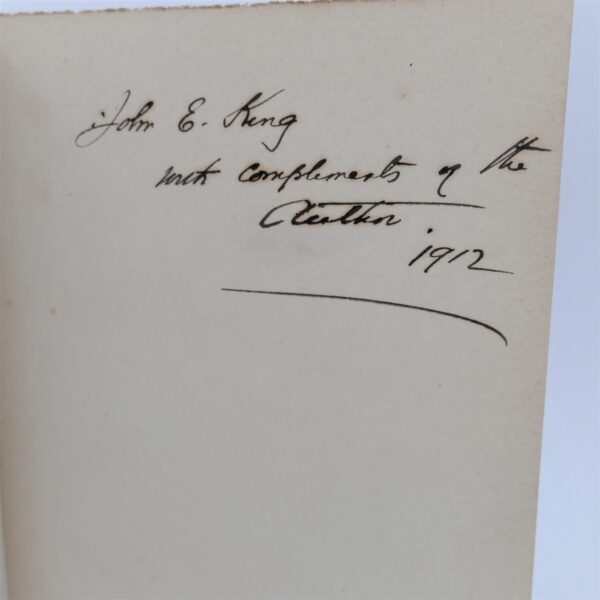 John E. King
with complements of the
Author.
1912